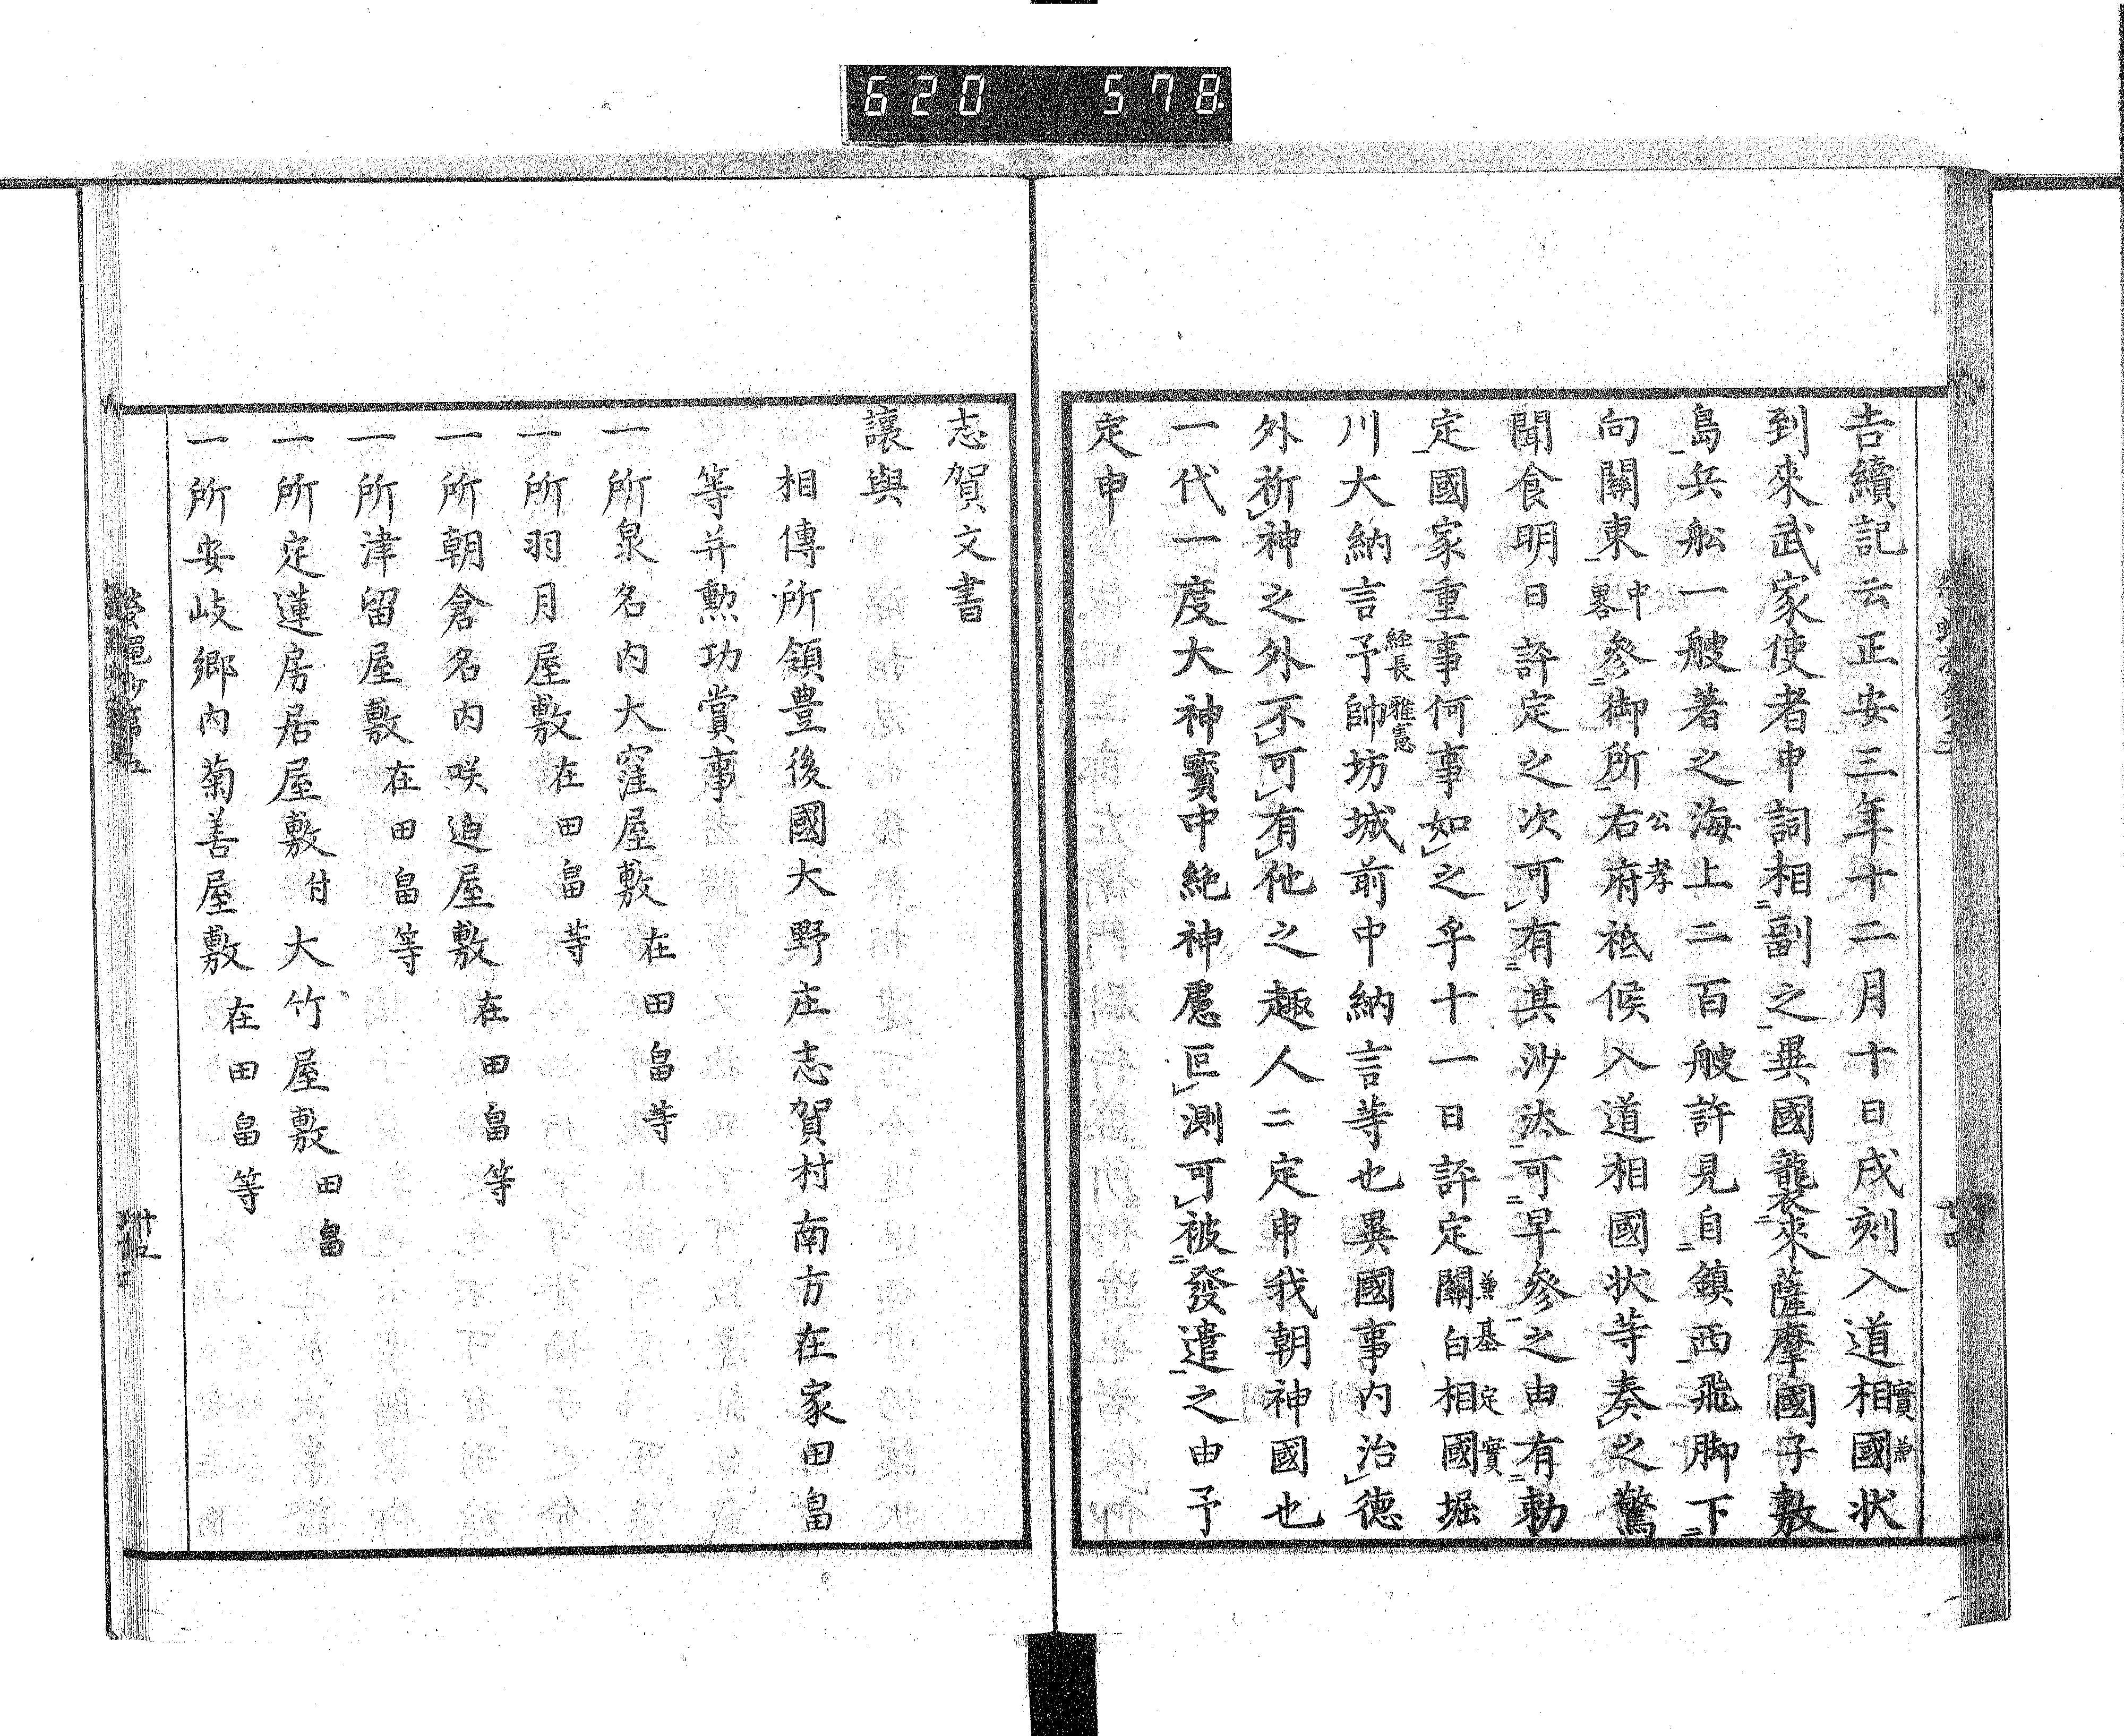 620 578
吉續記云正安三年十二月十日戌刻入道相國實兼状
到來武家使者申詞相副之異國襲來薩摩國子敷
島兵舩一艘著之海上二百艘許見自鎮西飛脚下
向關東中畧參御所右府公孝祗候入道相國状等奏之驚
聞食明日評定之次可有其沙汰可早參之由有勅
定國家重事何事如之乎十一日評定關白兼基相國定實堀
川大納言予經長帥雅憲坊城前中納言等也異國事内治德
外祈神之外不可有他之趣人二定申我朝神國也
一代一度大神寳中絶神慮叵測可被發遣之由予
定申
志賀文書
讓與
相傳所領豊後國大野庄志賀村南方在家田畠
等并勲功賞事
一所泉名内大窪屋敷在田畠等
一所羽月屋敷在田畠等
一所朝倉名内咲迫屋敷在田畠等
一所津留屋敷在田畠等
一所定蓮房居屋敷付大竹屋敷田畠
一所安岐郷内菊善屋敷在田畠等